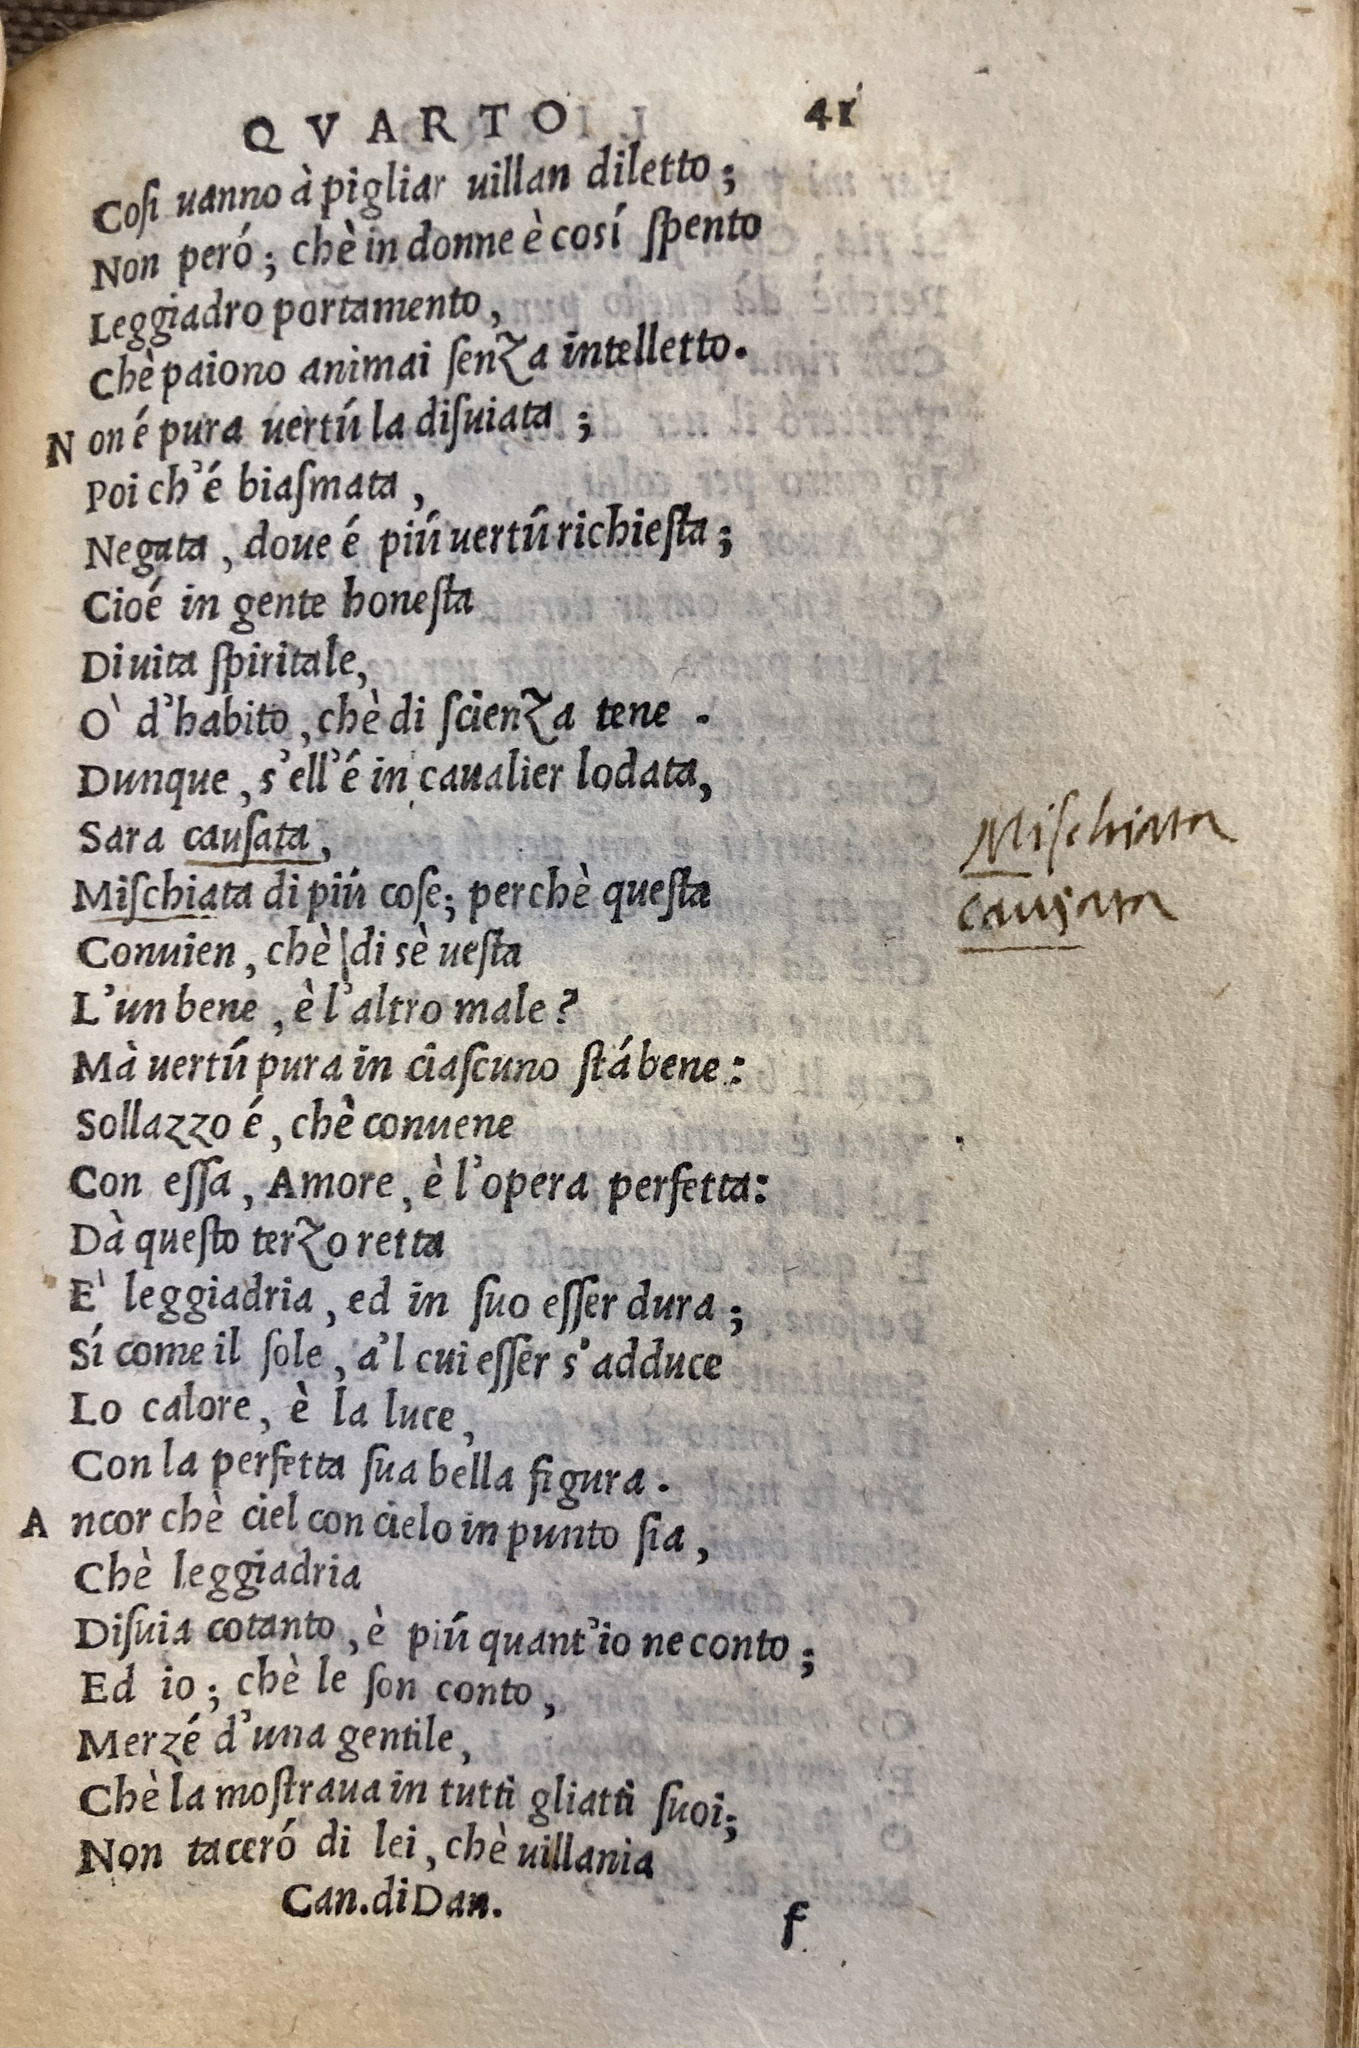 QVARTO 41
Cosi uanno à pigliar uillan diletto;
Non peró; chè in donne è cosí spento
Leggiadro portamento,
Chè paiono animai senza intelletto.
Non é pura uertú la disuiata;
Poi ch'é biasmata,
Negata, doue é piú uertú richiesta;
Cioé in gente honesta
Di uita spiritale,
O' d'habito, chè di scienza tene.
Dunque, s'ell'é in caualier lodata,
Sara causata,
Mischiata di piú cose; perchè questa
Conuien, chè di sè uesta
L'un bene, è l'altro male?
Mà uertú pura in ciascuno stá bene:
Sollazzo é, chè conuene
Con essa, Amore, è l'opera perfetta:
Dà questo terzo retta
E' leggiadria, ed in suo esser dura;
Sí come il sole, a'l cui esser s'adduce
Lo calore, è la luce,
Con la perfetta sua bella figura.
Ancor chè ciel con cielo in punto sia,
Chè leggiadria
Disuia cotanto, è piú quant'io ne conto;
Ed io; chè le son conto,
Merzé d'una gentile,
Chè la mostraua in tutti gliatti suoi;
Non taceró di lei, chè uillania
Can. di Dan. f
Mischiata
causata